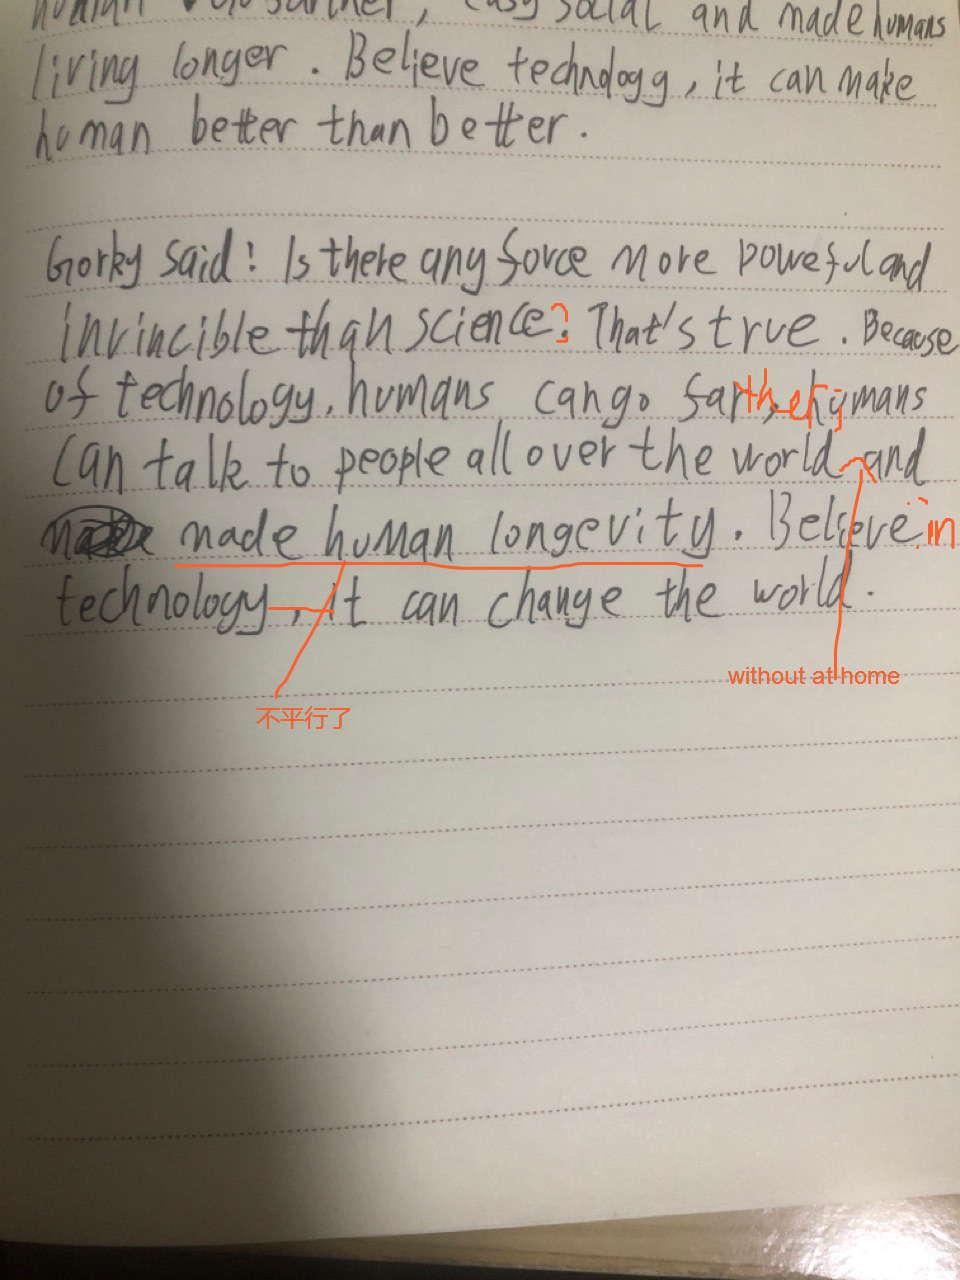 human go farther, easy social and made humans
living longer. Believe technology, it can make
human better than better.
Gorky said: Is there any force more poweful and
invincible than science? That's true. Because
of technology, humans can go farther, humans
can talk to people all over the world and
made human longevity. Believe in
technology, it can change the world.
without at home
不平行了